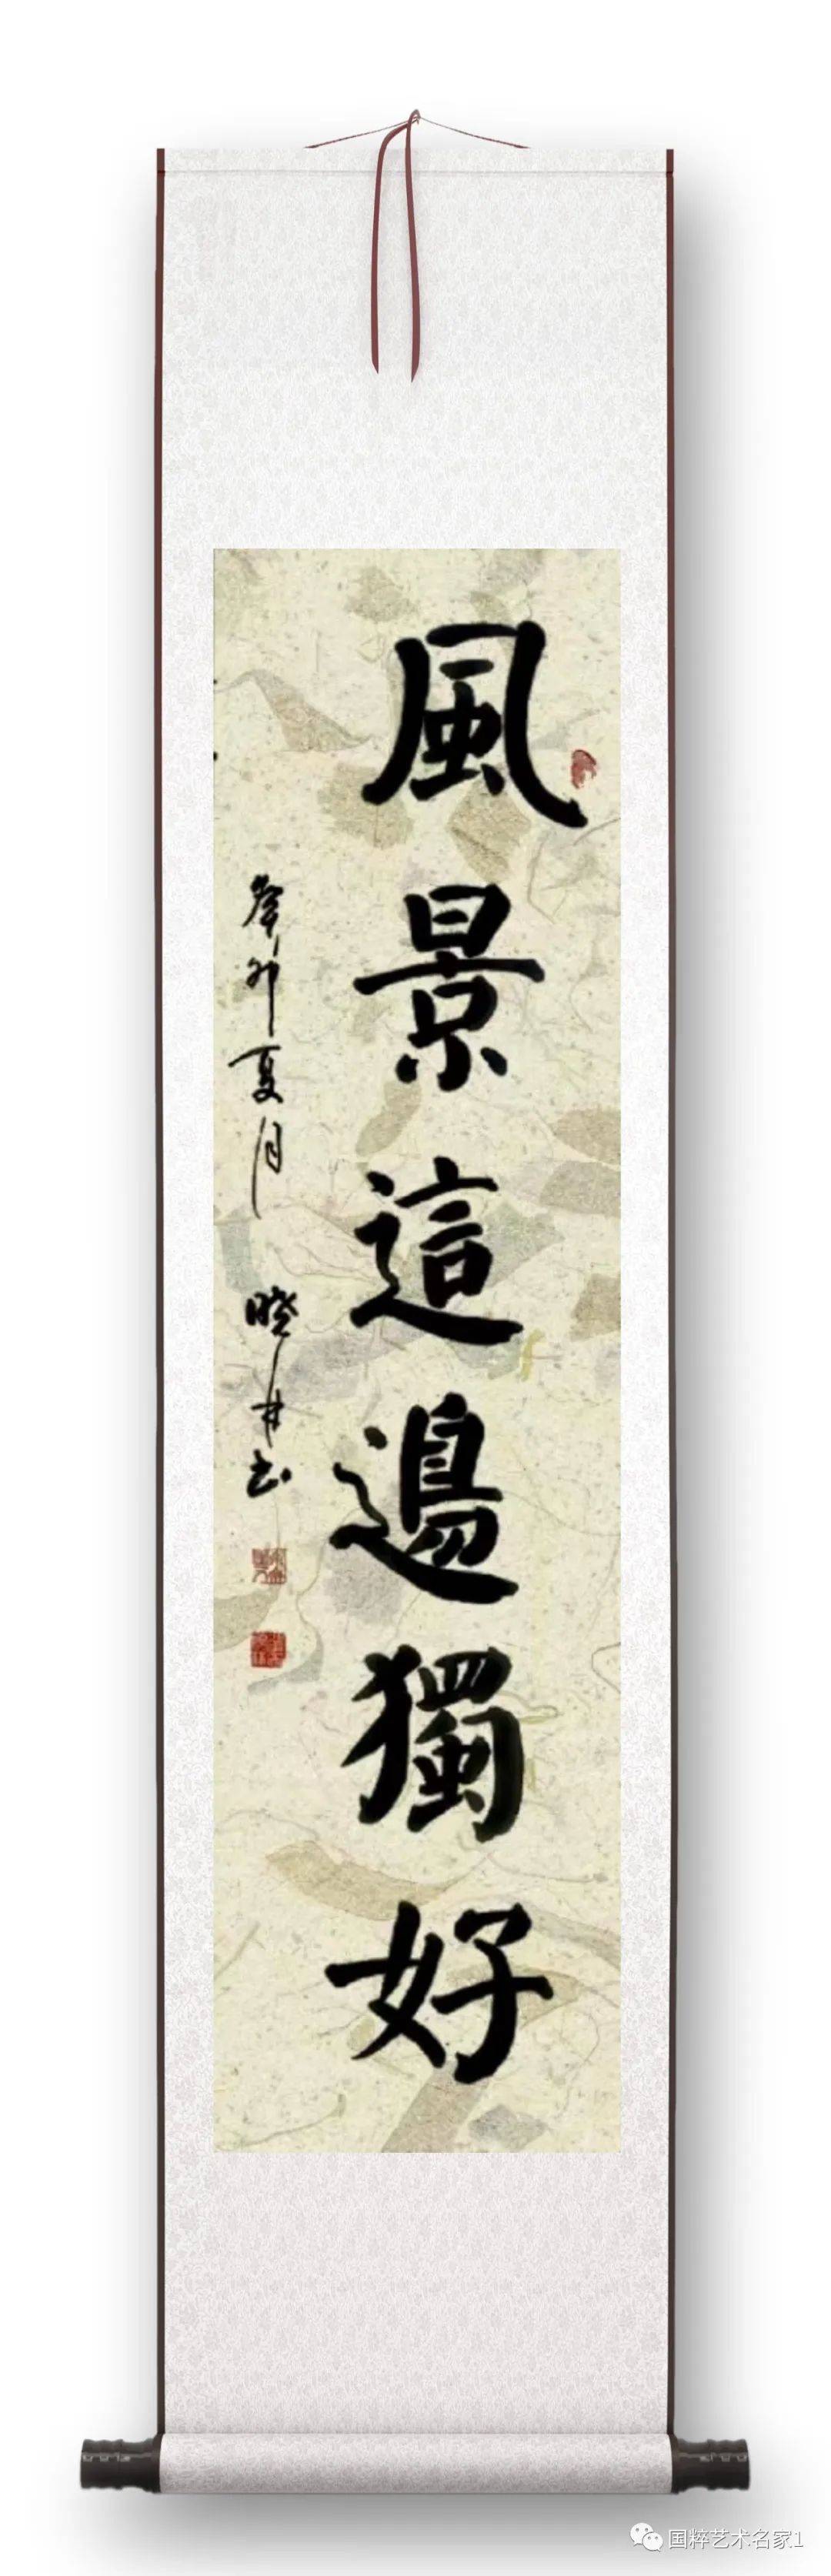 風景這邊獨好
癸卯夏月 曉林书
国粹艺术名家1